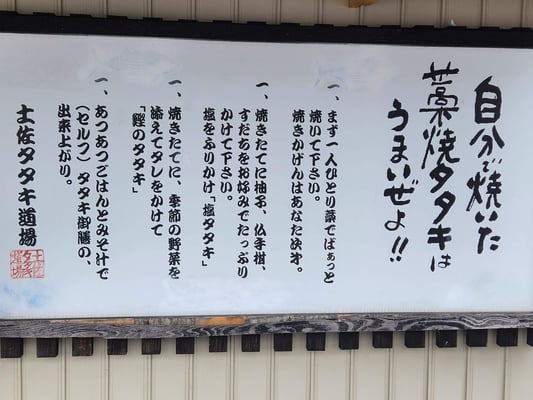 自分で焼いた
藁焼タタキは
うまいぜよ!!
一、まず一人ひとり藁でばぁっと
焼いて下さい。
焼きかげんはあなた次才。
一、焼きたてに柚子、仏手柑、
すだちをお好みでたっぷり
かけて下さい。
塩をふりかけ「塩タタキ」
一、焼きたてに、季節の野菜を
添えてタレをかけて
「鰹のタタキ」
一、あつあつごはんとみそ汁で
(セルフ)タタキ御膳の、
出来上がり。
土佐タタキ道場
土佐
タタキ
道場